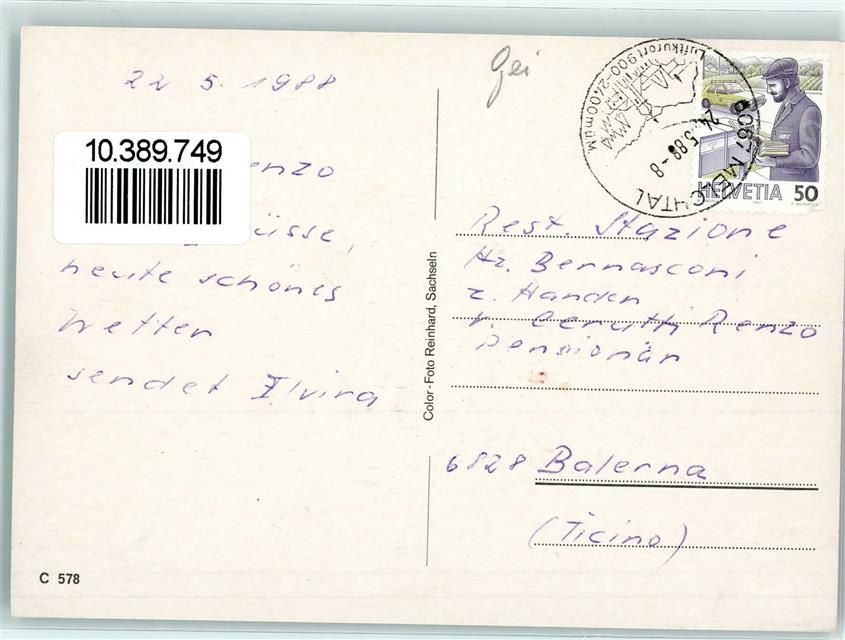 22. 5. 1988
10.389.749
enzo
üsse,
heute schönes
Wetter
sendet Elvira
C 578
Color-Foto Reinhard, Sachseln
Gei
Luftkurort 900-2400müM.
24.5.88-8
6067 MELCHTAL
HELVETIA 50
Rest. Stazione
Hr. Bernasconi
z. Handen
v. Cerutti Renzo
Pensionär
6828 Balerna
(Ticino)